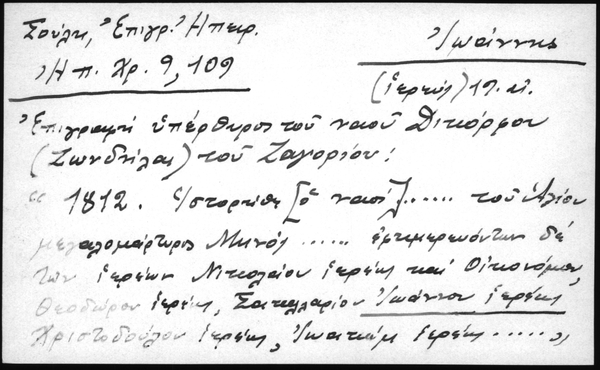 Σούλη, Ἐπιγρ. Ἠπειρ.
Ἠπ. Χρ. 9, 109
Ἰωάννης
(ἱερεύς) 19. αἰ.
Ἐπιγραφή ὑπέρθυρος τοῦ ναοῦ Δικόρφου
(Ζωνδήλας) τοῦ Ζαγορίου:
“ 1812. Ἱστορήθη [ὁ ναός]...... τοῦ Ἁγίου
μεγαλομάρτυρος Μηνᾶ ...... ἐφημερευόντων δέ
τῶν ἱερέων Νικολάου ἱερέως καί Οἰκονόμου,
Θεοδώρου ἱερέως, Σακελλαρίου Ἰωάννου ἱερέως
Χριστοδούλου ἱερέως, Ἰωακείμ ἱερέως ..... „